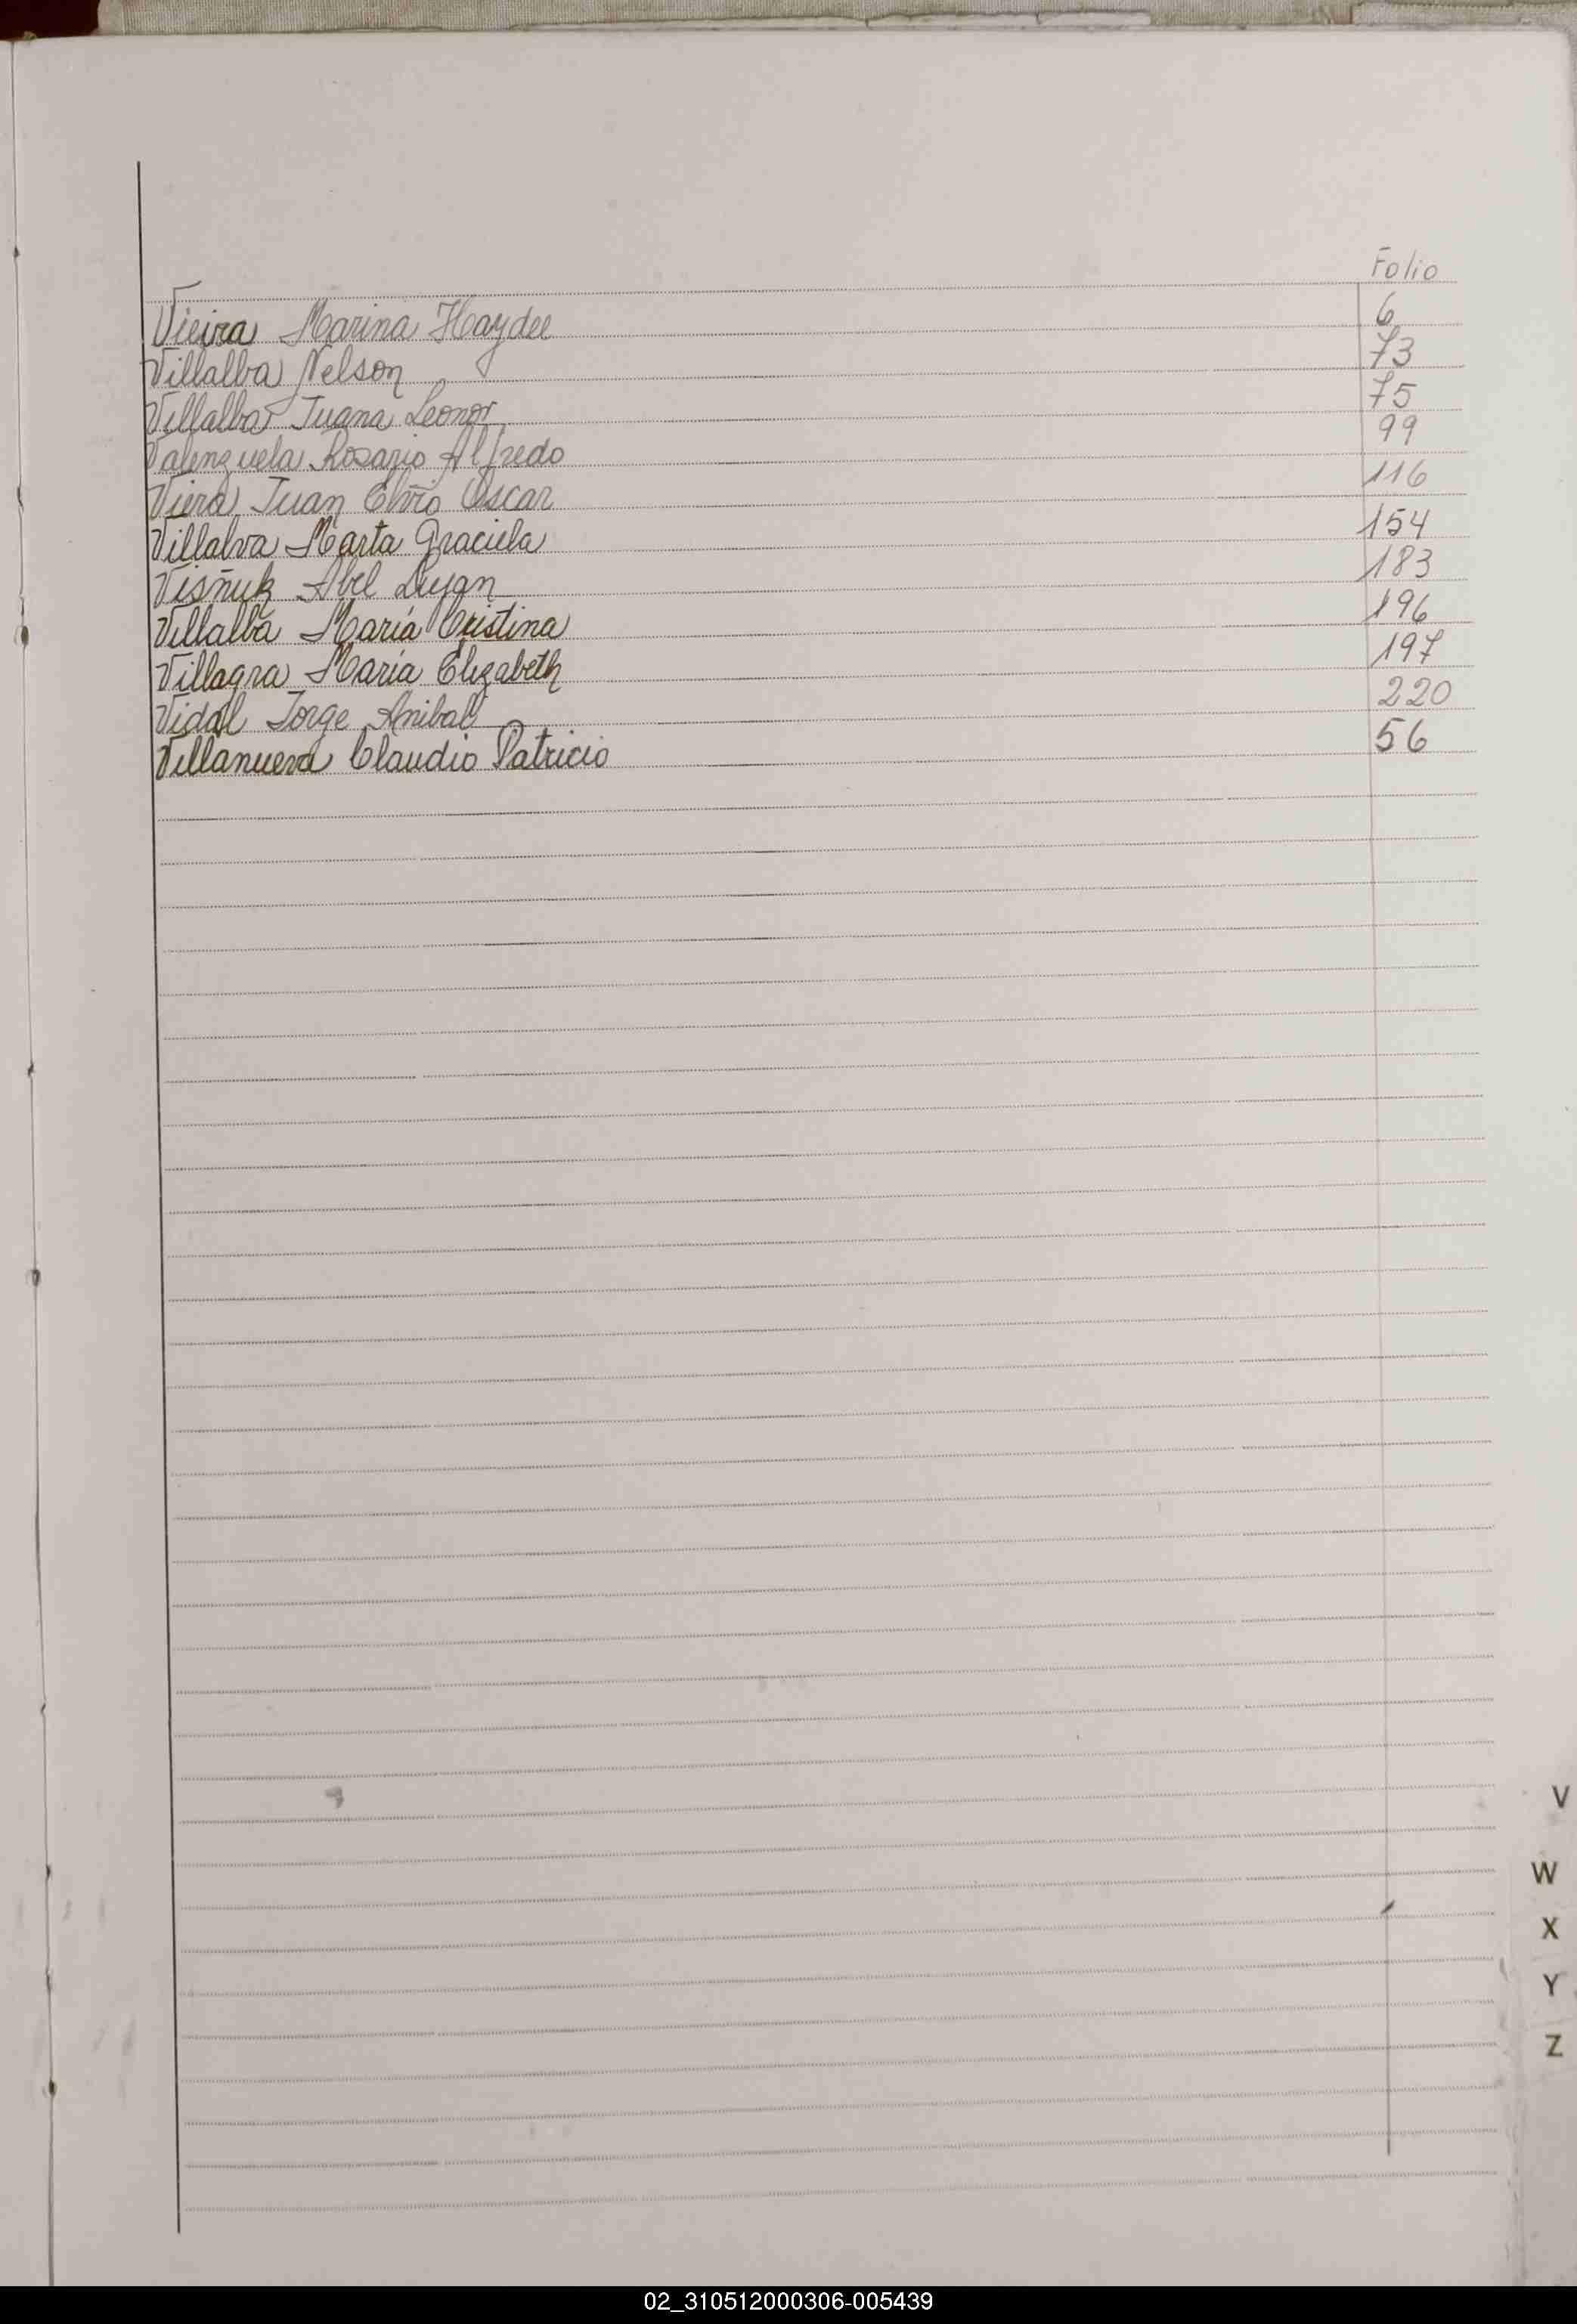 Folio
Vieira Marina Haydee 6
Villalba Nelson 73
Villalba Juana Leonor 75
Valenzuela Rosario Alfredo 99
Viera Juan Elvio Oscar 116
Villalva Marta Graciela 154
Visñuk Abel Lujan 183
Villalba María Cristina 196
Villagra María Elizabeth 197
Vidal Jorge Anibal 220
Villanueva Claudio Patricio 56
V
W
X
Y
Z
02_310512000306-005439